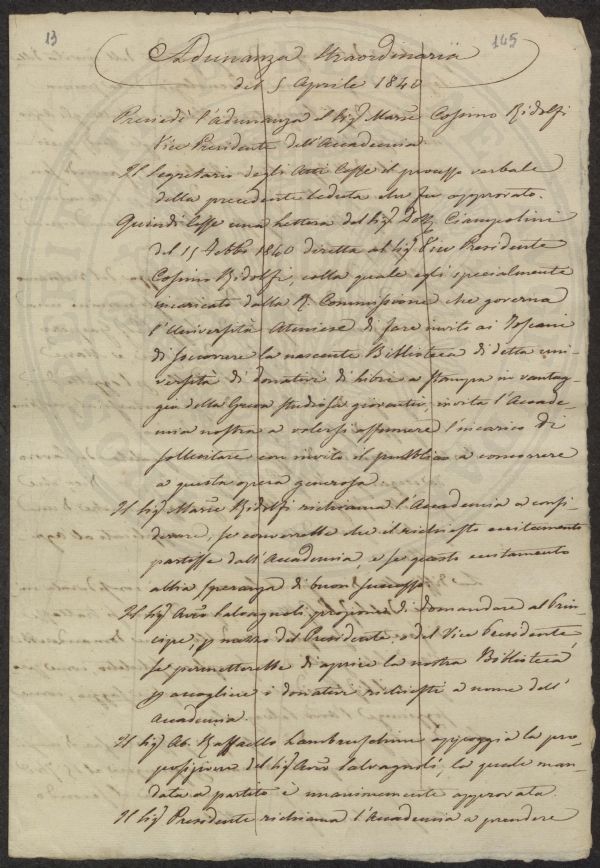 13
145
Adunanza straordinaria
del 5 Aprile 1840
Presiedè l'adunanza il Sig.r March.e Cosimo Ridolfi
Vice Presidente dell'Accademia.
Il Segretario degli Atti lesse il processo verbale
della precedente seduta che fu approvato.
Quindi lesse una lettera del Sig.r Dott. Ciampolini
del 15 Febb.o 1840 diretta al Sig.r Vice Presidente
Cosimo Ridolfi, colla quale egli specialmente
incaricato dalla R. Commissione che governa
l'Università Ateniese di fare invito ai Toscani
di soccorrere la nascente Biblioteca di detta uni-
versità di donativi di libri a stampa in vantag-
gio della Greca studiosa gioventù, invita l'Accade-
mia nostra a volersi assumere l'incarico di
sollecitare con invito il pubblico a concorrere
a questa opera generosa.
Il Sig.r March.e Ridolfi richiama l'Accademia a consi-
derare, se converrebbe che il richiesto eccitamento
partisse dall'Accademia, e se questo eccitamento
abbia speranza di buon successo.
Il Sig.r Avv.o Salvagnoli propone di domandare al Prin-
cipe, p mezzo del Presidente, o del Vice Presidente,
se permetterebbe di aprire la nostra Biblioteca
p accogliere i donativi richiesti a nome dell'
Accademia.
Il Sig.r Ab. Raffaello Lambruschini appoggia la pro-
posizione del Sig.r Avv.o Salvagnoli, la quale man-
data a partito è unanimemente approvata.
Il Sig.r Presidente richiama l'Accademia a prendere